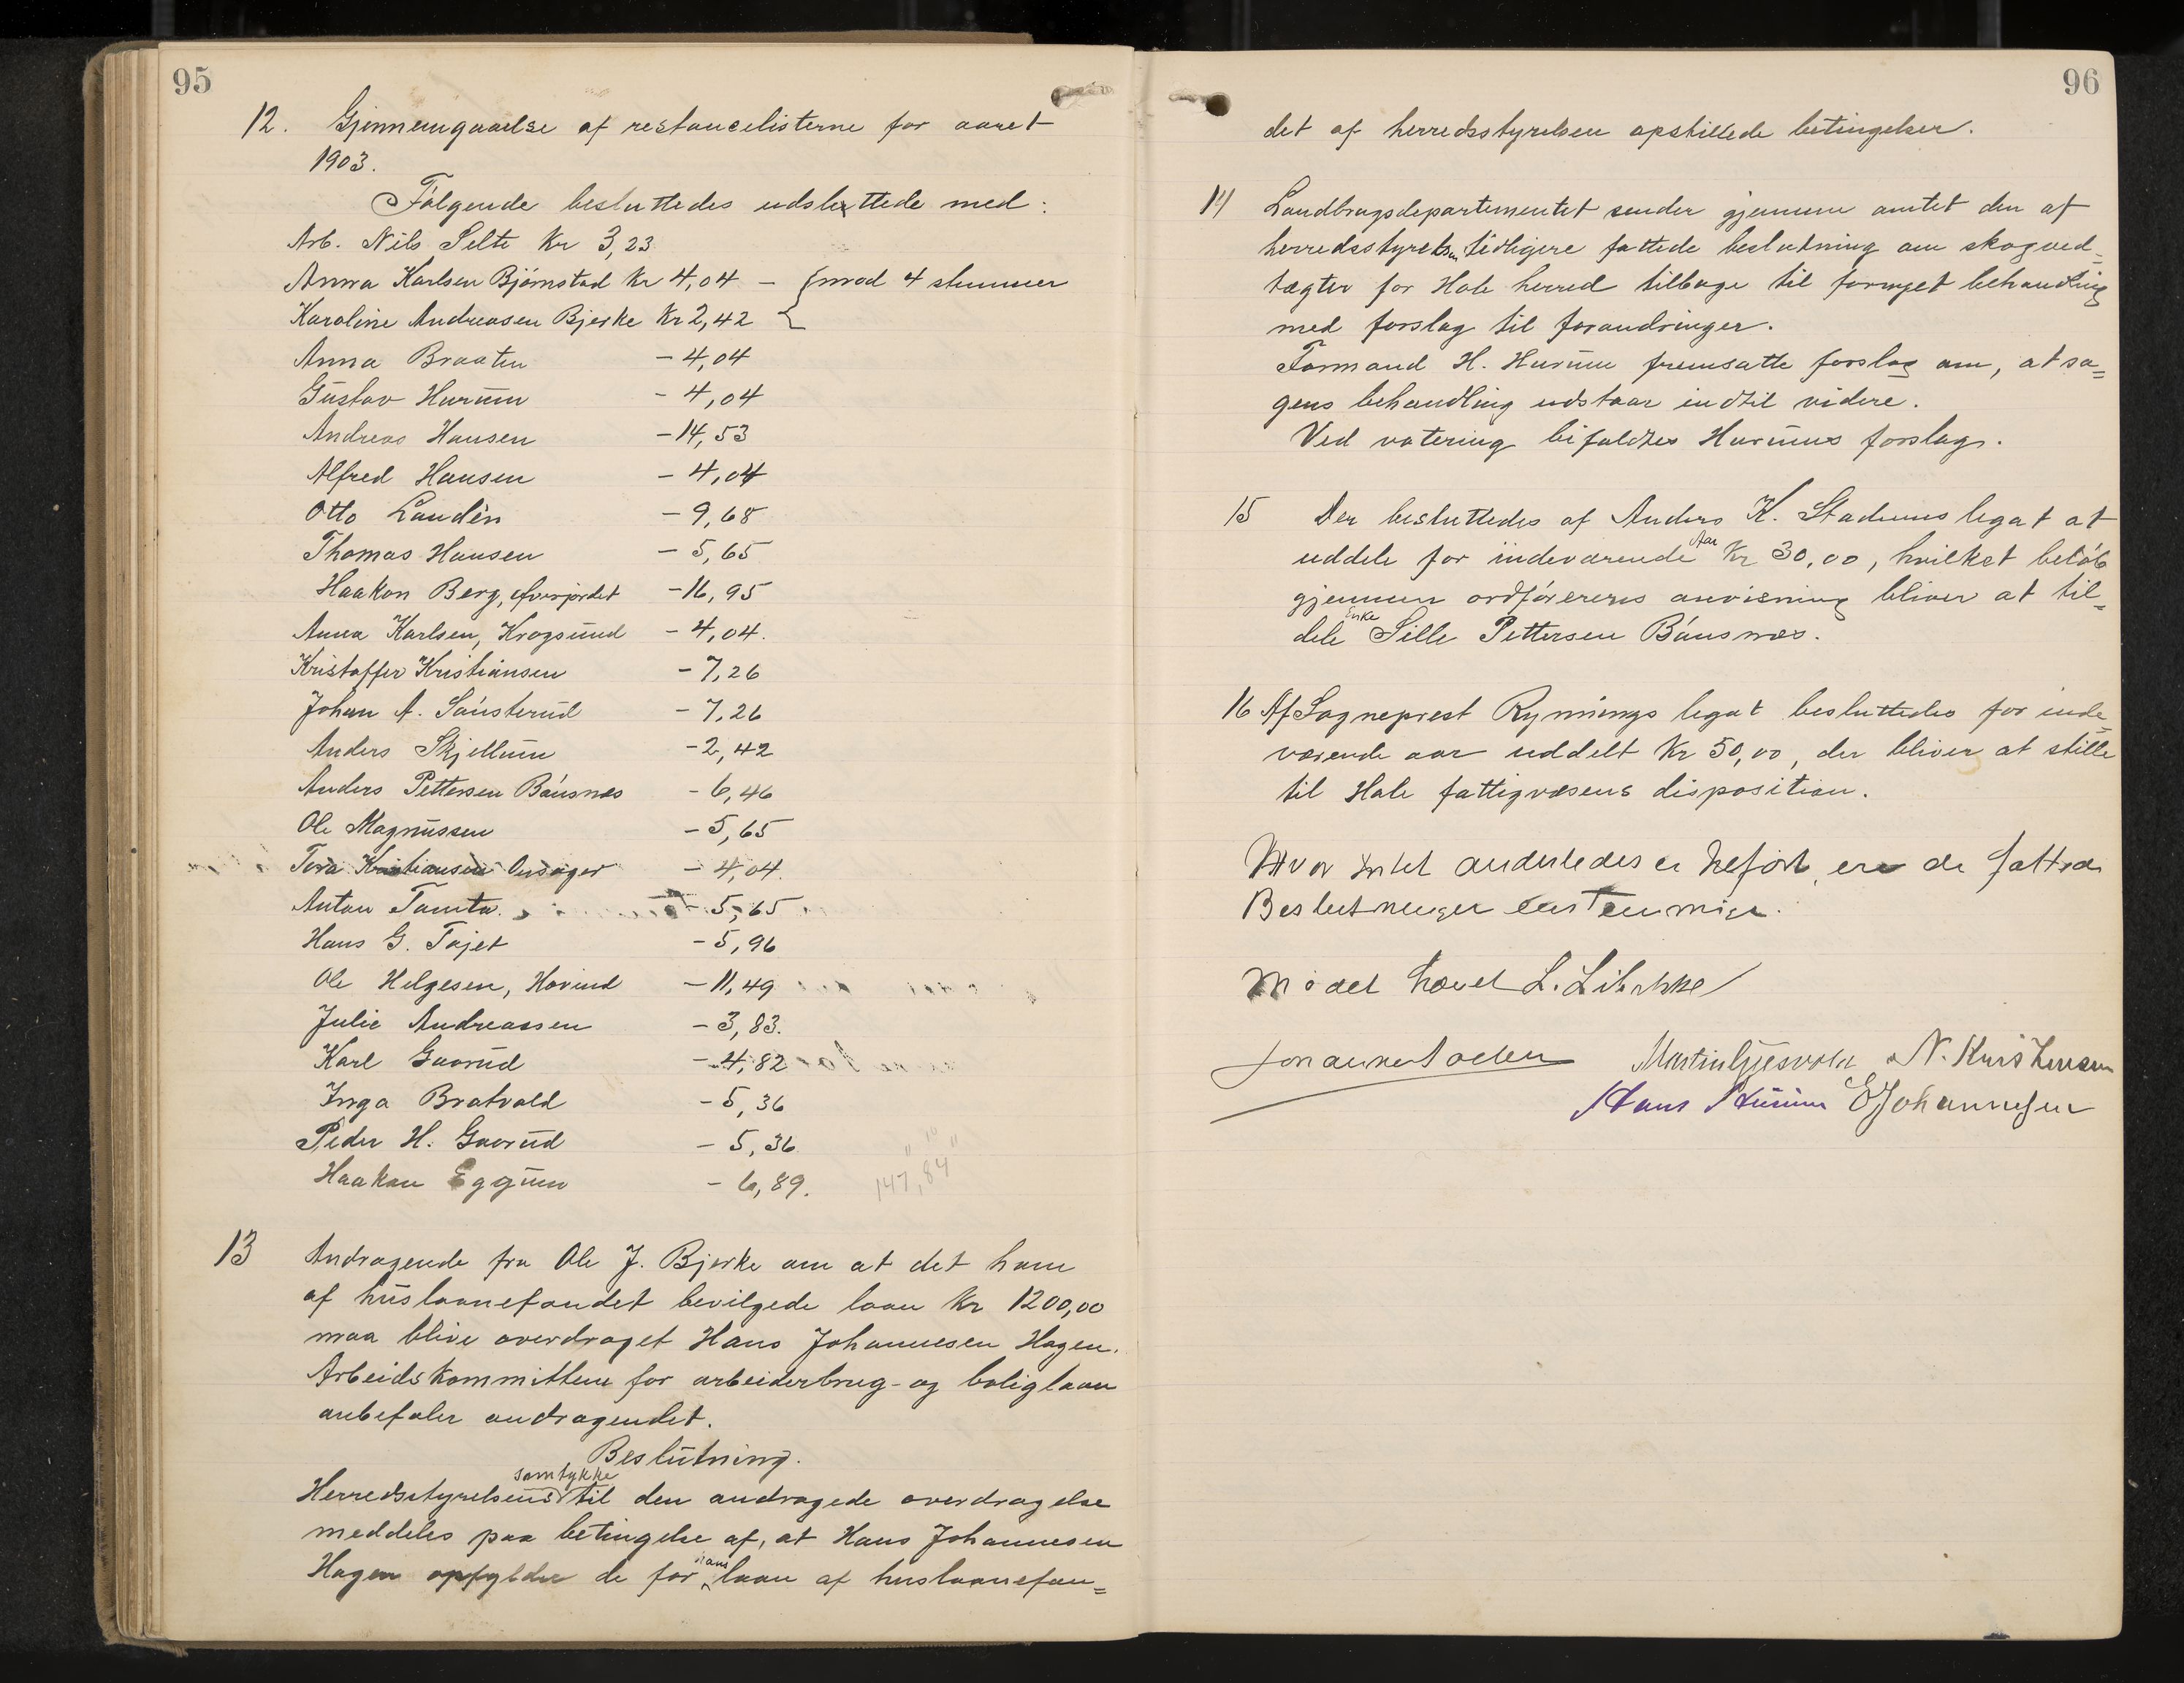 95
12. Gjennemgaaelse af restancelisterne for aaret
1903.
Følgende besluttedes udslettede med:
Arb. Nils Selte Kr 3,23
Anna Karlsen Bjørnstad Kr 4,04 - { mod 4 stemmer
Karoline Andreasen Bjerke Kr 2,42 {
Anna Braaten - 4,04
Gustav Hurum - 4,04
Andreas Hansen - 14,53
Alfred Hansen - 4,04
Otto Landén - 9,68
Thomas Hansen - 5,65
Haakon Berg, - 16,95
Anna Karlsen, Krogsund - 4,04.
Kristoffer Kristiansen - 7,26
Johan A. Sønsterud - 7,26
Anders Skjellum - 2,42
Anders Pettersen Bønsnæs - 6,46
Ole Magnussen - 5,65
Tora Kristiansen Onsager - 4,04.
Anton Tomta. - 5,65
Hans G. Tajet - 5,96
Ole Helgesen, Hovind - 11,49
Julie Andreassen - 3,83.
Karl Gaorud - 4,82
Inga Bratvold - 5,36
Peder H. Gaorud - 5,36
Haakon Eggum - 6,89.
147,84
13 Andragende fra Ole J. Bjerke om at det ham
af huslaanefondet bevilgede laan Kr 1200,00
maa blive overdraget Hans Johannesen Hagen.
Arbeidskommitteen for arbeiderbrug- og boliglaan
anbefaler andragendet.
Beslutning.
samtykke
Herredsstyrelsens til den andragede overdragelse
meddeles paa betingelse af, at Hans Johannesen
hans
Hagen opfylder de for laan af huslaanefon=
96
det af herredsstyrelsen opstillede betingelser.
14 Landbrugsdepartementet sender gjennem amtet den af
herredsstyrelsen tidligere fattede beslutning om skogved=
tægter for Hole herred tilbage til fornyet behandling
med forslag til forandringer.
Formand H. Hurum fremsatte forslag om, at sa=
gens behandling udstaar indtil videre.
Ved votering bifaldtes Hurums forslag.
15 Der besluttedes af Anders K. Stadums legat at
Aar
uddele for indeværende Kr 30,00, hvilket beløb
gjennem ordførerens anvisning bliver at til=
Enke
dele Sille Pettersen Bønsnæs.
16 Af Sogneprest Rynnings legat besluttedes for inde=
værende aar uddelt Kr 50,00, der bliver at stille
til Hole fattigvæsens disposition.
Hvor intet anderledes er tilført, ere de fattede
Beslutninger enstemmige.
Mødet hævet L. Libakke
Martin Gjesvold N. Kristensen
Hans Hurum E Johannesen